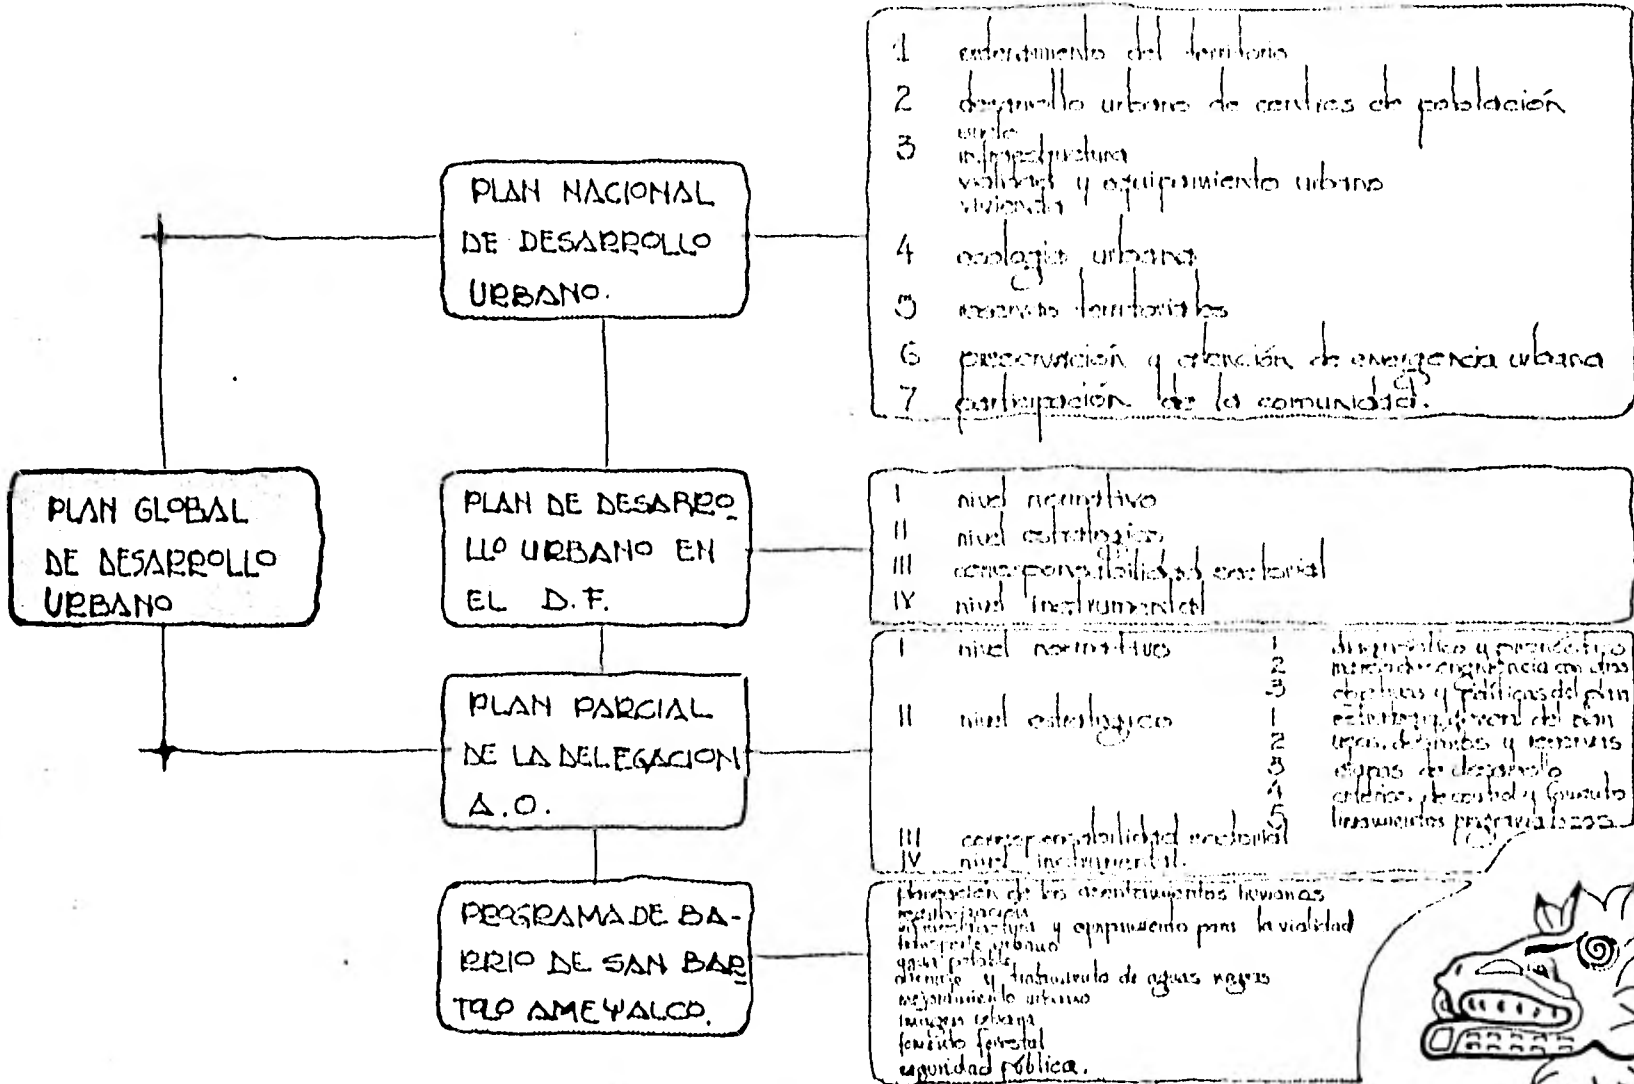 1 ordenamiento del territorio
2 desarrollo urbano de centros de población
3 suelo
infraestructura
vialidad y equipamiento urbano
vivienda
4 ecología urbana
5 reservas territoriales
6 preservación y atención de emergencia urbana
7 participación de la comunidad.
PLAN NACIONAL
DE DESARROLLO
URBANO.
PLAN GLOBAL
DE DESARROLLO
URBANO
PLAN DE DESARRO
LLO URBANO EN
EL D.F.
I nivel normativo
II nivel estrategico
III corresponsabilidad sectorial
IV nivel instrumental
PLAN PARCIAL
DE LA DELEGACION
A.O.
I nivel normativo
1 diagnóstico y pronóstico
2 congruencia con otros
3 objetivos y políticas del plan
II nivel estrategico
1 estrategia general del plan
2 usos, destinos y reservas
3 etapas de desarrollo
4 criterios de control y fomento
5 lineamientos
III corresponsabilidad sectorial
IV nivel instrumental.
PROGRAMA DE BA-
RRIO DE SAN BAR
TOLO AMEYALCO.
planeación de los asentamientos humanos
infraestructura y equipamiento para la vialidad
transporte urbano
agua potable
drenaje y tratamiento de aguas negras
mejoramiento urbano
imagen urbana
fomento forestal
seguridad pública.